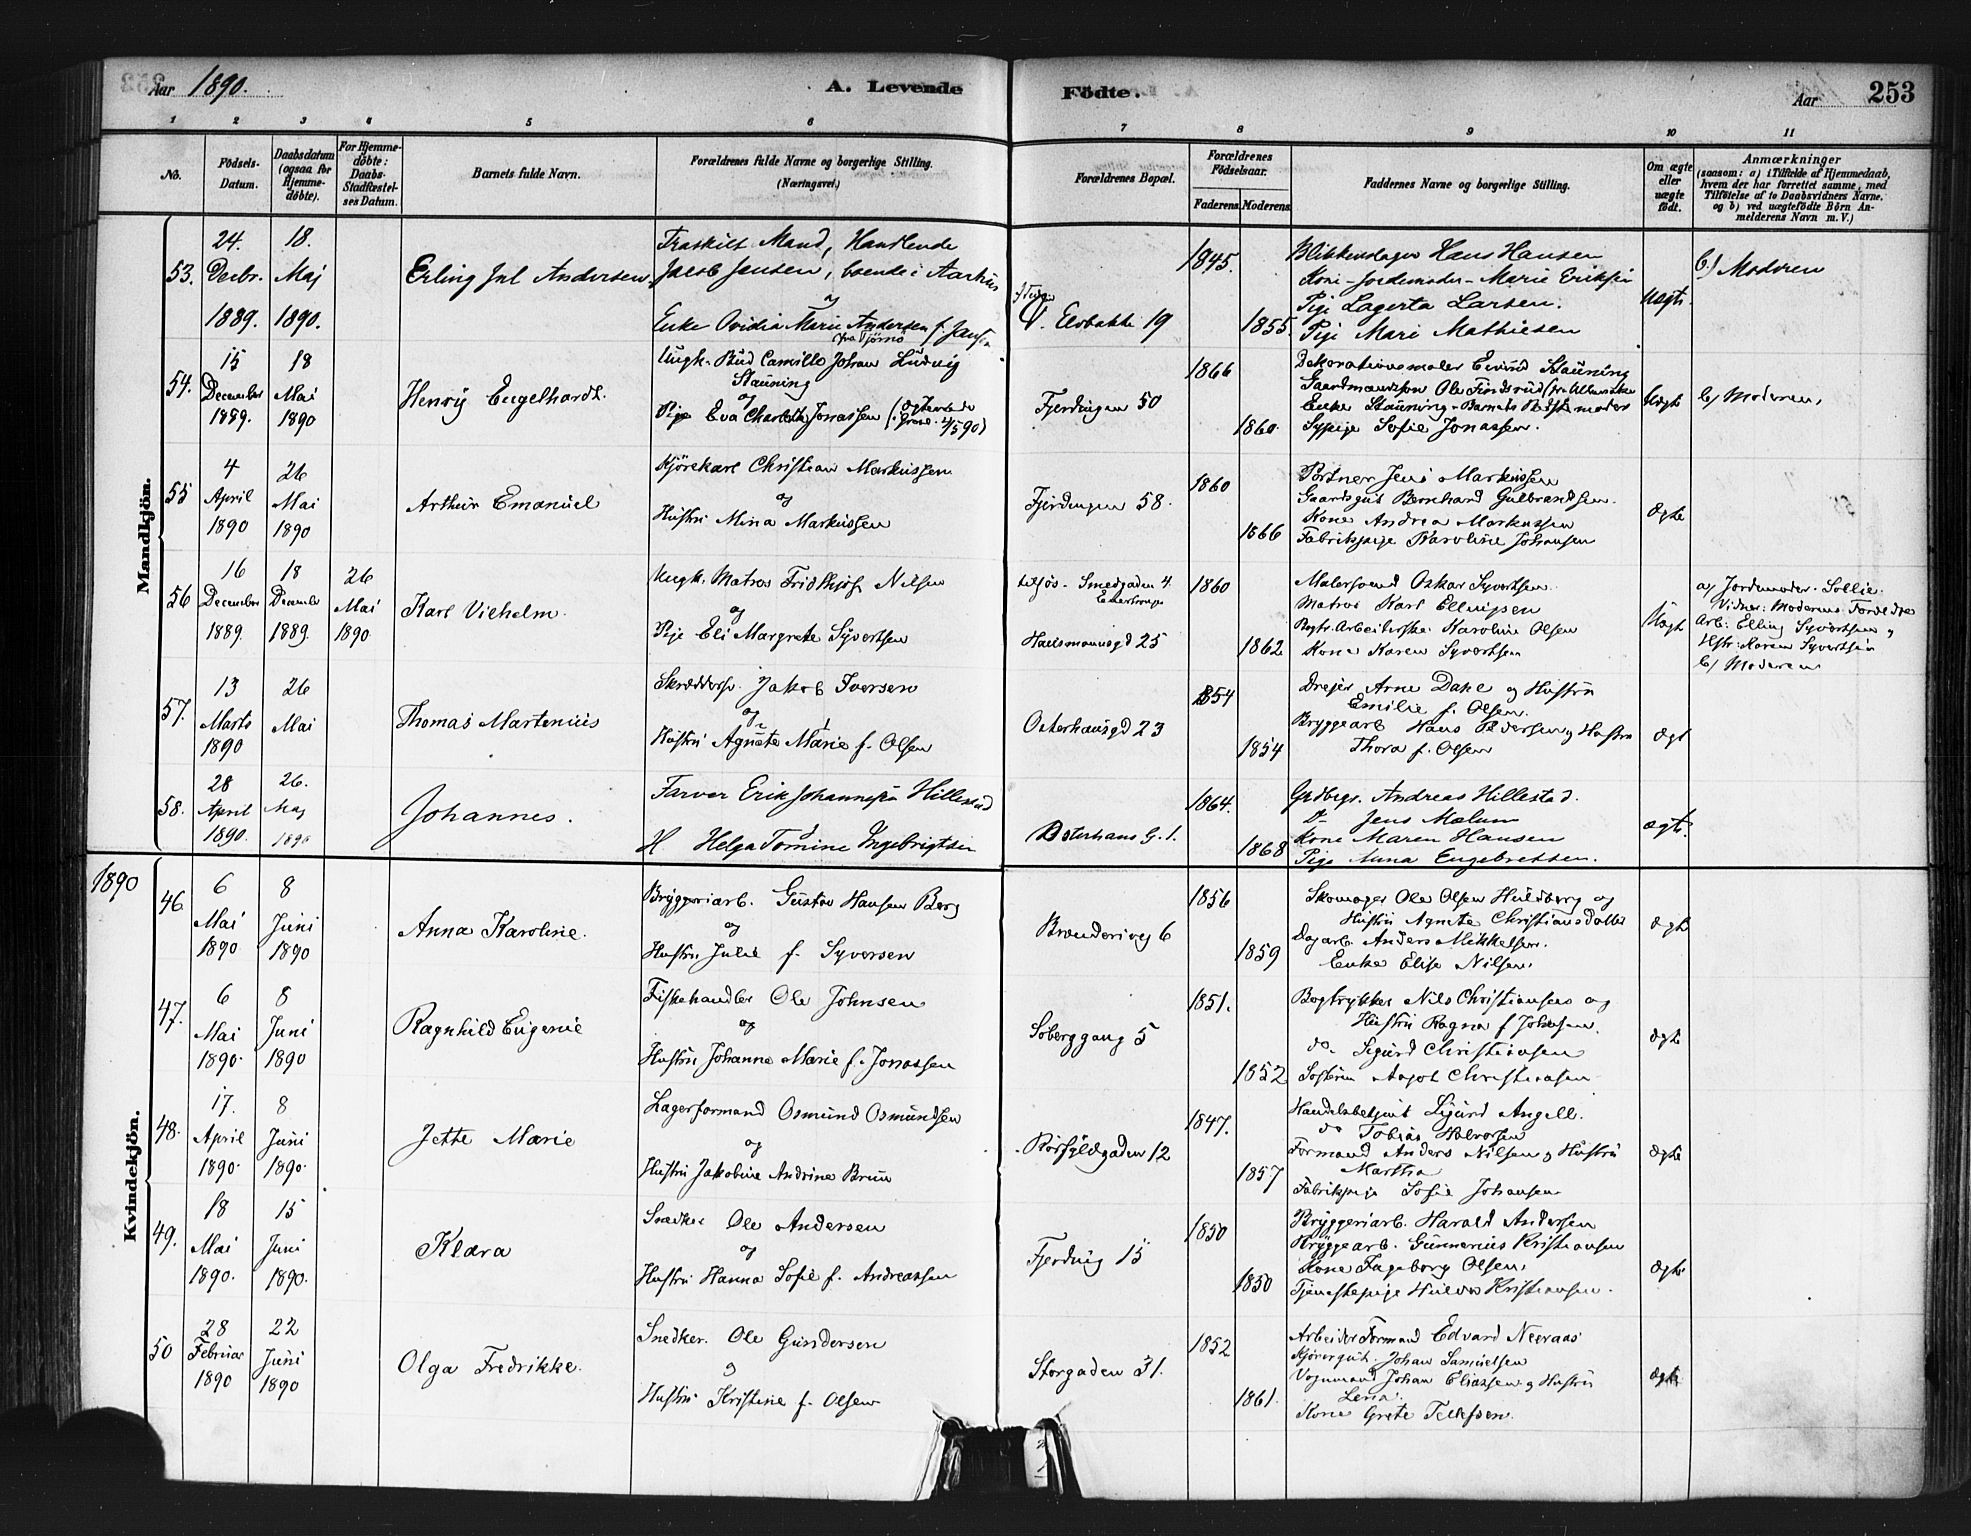 Aar 1890. A. Levende Födte. Aar 253
1 2 3 4 5 6 7 8 9 10 11
No.
Födsels-Datum.
Daabsdatum (ogsaa for Hjemme-döbte).
For Hjemme-döbte: Daabs-Stadfæstel-ses Datum.
Barnets fulde Navn.
Forældrenes fulde Navne og borgerlige Stilling.
(Næringsvei.)
Forældrenes Bopæl.
Forældrenes Födselsaar.
Faderens. Moderens.
Faddernes Navne og borgerlige Stilling.
Om ægte eller uægte födt.
Anmærkninger
(saasom: a) i Tilfælde af Hjemmedaab,
hvem der har forrettet samme, med
Tilföielse af to Daabsvidners Navne.
og b) ved uægtefödte Börn An-
melderens Navn m. V.)
Mandkjön.
53.
24. Decbr. 1889.
18. Maj 1890.
Erling Jul Andersen
Fraskilt Mand, Handlende
Jacob Jensen, boende i Aarhus
og
Enke Ovidia Marie Andersen f. Jansen
fra Tjömö
V. Elvbakke 19
1845.
1855.
Blikkenslager Hans Hansen
Kone - Jordemoder - Marie Eriksen
Pige Lagerta Larsen.
Pige Mari Mathiesen
Uægte.
b.) Moderen
54.
15 December 1889.
18 Mai 1890
Henry Engelhardt.
Ungk. Bud Camillo Johan Ludvig
Stauning
og
Pige Eva Charlotte Jonassen
Fjerdingen 50
1866
1860.
Dekorationsmaler Eivind Stauning
Enke Stauning - Barnets
Sypige Sofie Jonassen.
Uægte
b) Moderen,
55
4 April 1890
26 Mai 1890
Arthur Emanuel
Kjörekarl Christian Markussen
og
Hustru Mina Markussen
Fjerdingen 58.
1860
1866
Portner Jens Markussen
Gaardsgut Bernhard Gulbrandsen.
Kone Andrea Markussen
Fabrikpige Karoline Johansen
Ægte
56
16 December 1889.
18 December 1889.
26 Mai 1890
Karl Vilhelm.
Ungk. Matros Fridthjof Nilsen
og
Pige Eli Margrete Syvertsen
Smedgaden 4.
Hausmannsgd 25
1860
1862
Malersvend Oskar Syvertsen.
Matros Karl Ellingsen
Arbeiderske Karoline Olsen
Kone Karen Syvertsen
Uægte
a) Jordemoder Sollie.
Vidner: Moderens Forældre
Arb. Elling Syvertsen og
Hstr. Karen Syvertsen
b) Moderen
57.
13 Marts 1890
26 Mai
Thomas Martenius
Skrædders. Jakob Iversen
og
Hustru Agnete Marie f. Olsen
Osterhausgd 23
1854
1854
Drejer Arne Dahl og Hustru
Emilie f. Olsen.
Bryggearb Hans Pedersen og Hustru
Thora f. Olsen
Ægt
58.
28 April 1890.
26. Maj 1890
Johannes.
Farver Erik Johannesen Hillestad
H Helga Tomine Ingebrigtsen
Osterhaus G. 1.
1864.
1868
Grdbrgr. Andreas Hillestad.
Do Jens Mælum
Kone Maren Hansen
Pige Anna Engebretsen.
Ægte.
1890
Kvindekjön.
46.
6 Mai 1890.
8 Juni 1890
Anna Karoline.
Bryggeriarb. Gustav Hansen Berg
og
Hustru Julie f. Syversen
Brenderivej 6
1856
1859
Skomager Ole Olsen Huldberg og
Hustru Agnete Christiansdatter
Dagarb. Anders Mikkelsen.
Enke Elise Nilsen.
Ægte
47.
6 Mai 1890.
8 Juni 1890
Ragnhild Eugenie
Fiskehandler Ole Johnsen
og
Hustru Johanne Marie f. Jonassen
Soberggang 5
1851.
1852
Bogtrykker Nils Christiansen og
Hustru Ragna f Johnsen.
do. Sigurd Christiansen
Aagot Christiansen
Ægte
48.
17. April 1890.
8 Juni 1890.
Jette Marie
Lagerformand Osmund Osmundsen
og
Hustru Jakobine Andrine Bruun
Rörfyldgaden 12
1847.
1857
Handelsbetjent Sigurd Angell.
do Tobias Halvorsen
Formand Anders Nilsen og Hustru
Martha
Fabrikpige Sofie Johansen
Ægte
49.
18 Mai 1890.
15 Juni 1890.
Klara
Snedker Ole Andersen
og
Hustru Hanna Sofie f. Andreassen
Fjerding 15
1850
1850
Bryggeriarb. Harald Andersen
Bryggearb. Gunnerius Kristiansen
Kone Ingeborg Olsen.
Tjenestepige Hulda Kristiansen.
Ægte
50
28 Februar 1890
22 Juni 1890
Olga Fredrikke.
Snedker. Ole Gundersen
og
Hustru Kristine f. Olsen
Storgaden 31.
1852
1861.
Arbeider Formand Edvard Neeraas
Kjörergut. Johan Samuelsen
Vognmand Johan Eliassen og Hustru
Lena.
Kone Grete Tellefsen.
Ægte